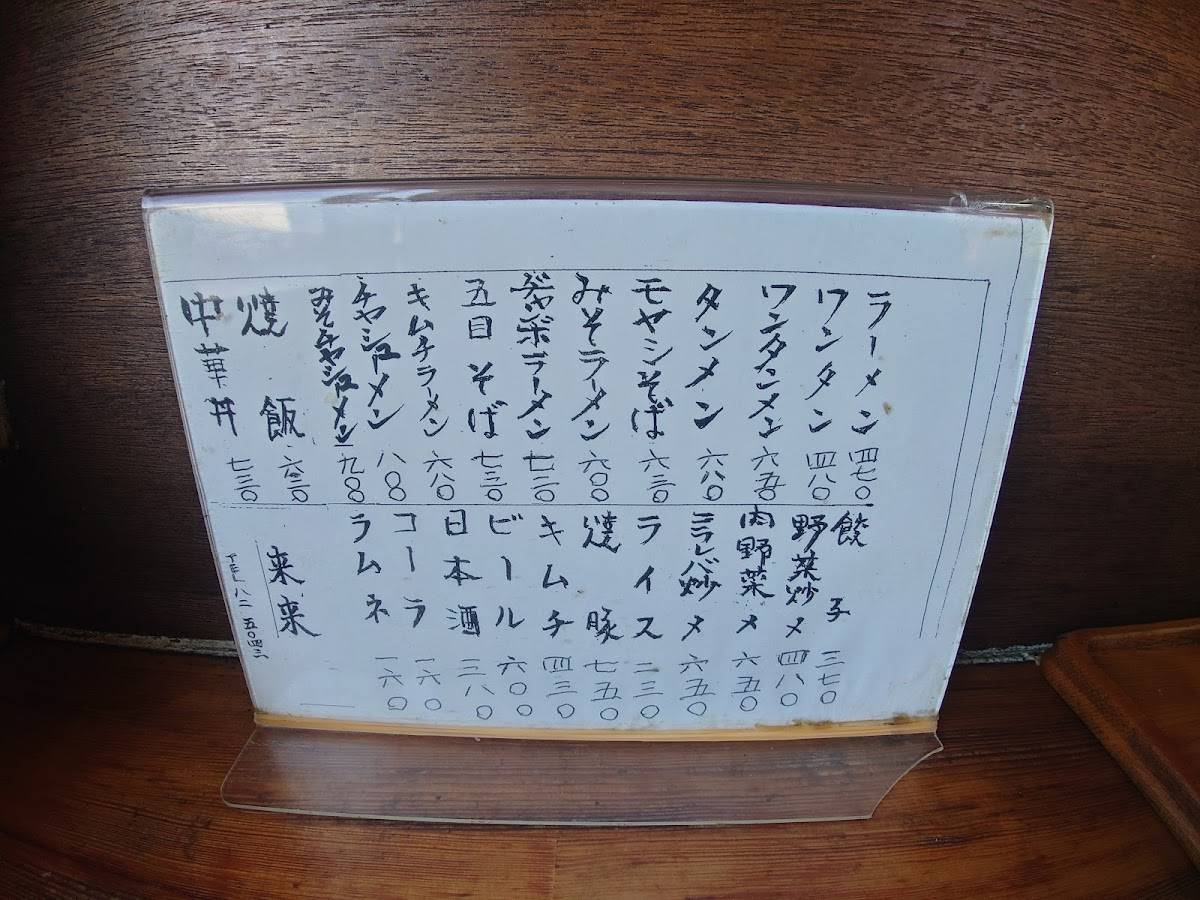 ラーメン 四七〇
ワンタン 四八〇
ワンタンメン 六五〇
タンメン 六八〇
モヤシそば 六三〇
みそラーメン 六〇〇
ジャンボラーメン 七三〇
五目そば 七三〇
キムチラーメン 六八〇
チャシューメン 八〇〇
みそチャシューメン 九〇〇
焼飯 六三〇
中華丼 七三〇
餃子 三七〇
野菜炒メ 四八〇
肉野菜メ 六五〇
ニラレバ炒メ 六五〇
ライス 二三〇
焼豚 七五〇
キムチ 四三〇
ビール 六〇〇
日本酒 三八〇
コーラ 一六〇
ラムネ 一六〇
来来
TEL 八二 五〇四三